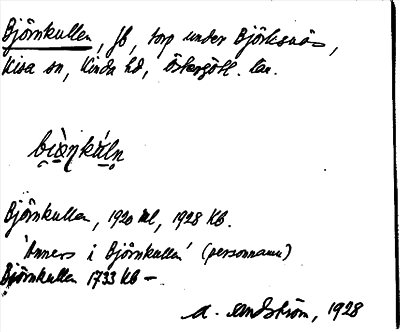 Björnkullen, fb, torp under Björksnäs,
Kisa sn, Kinda hd, Östergötl. län.
Björnkulla, 1920 ml, 1928 Kb.
'Anners i Björnkulla' (personnamn)
Björnkulla 1733 Kb –
A. Lindström, 1928